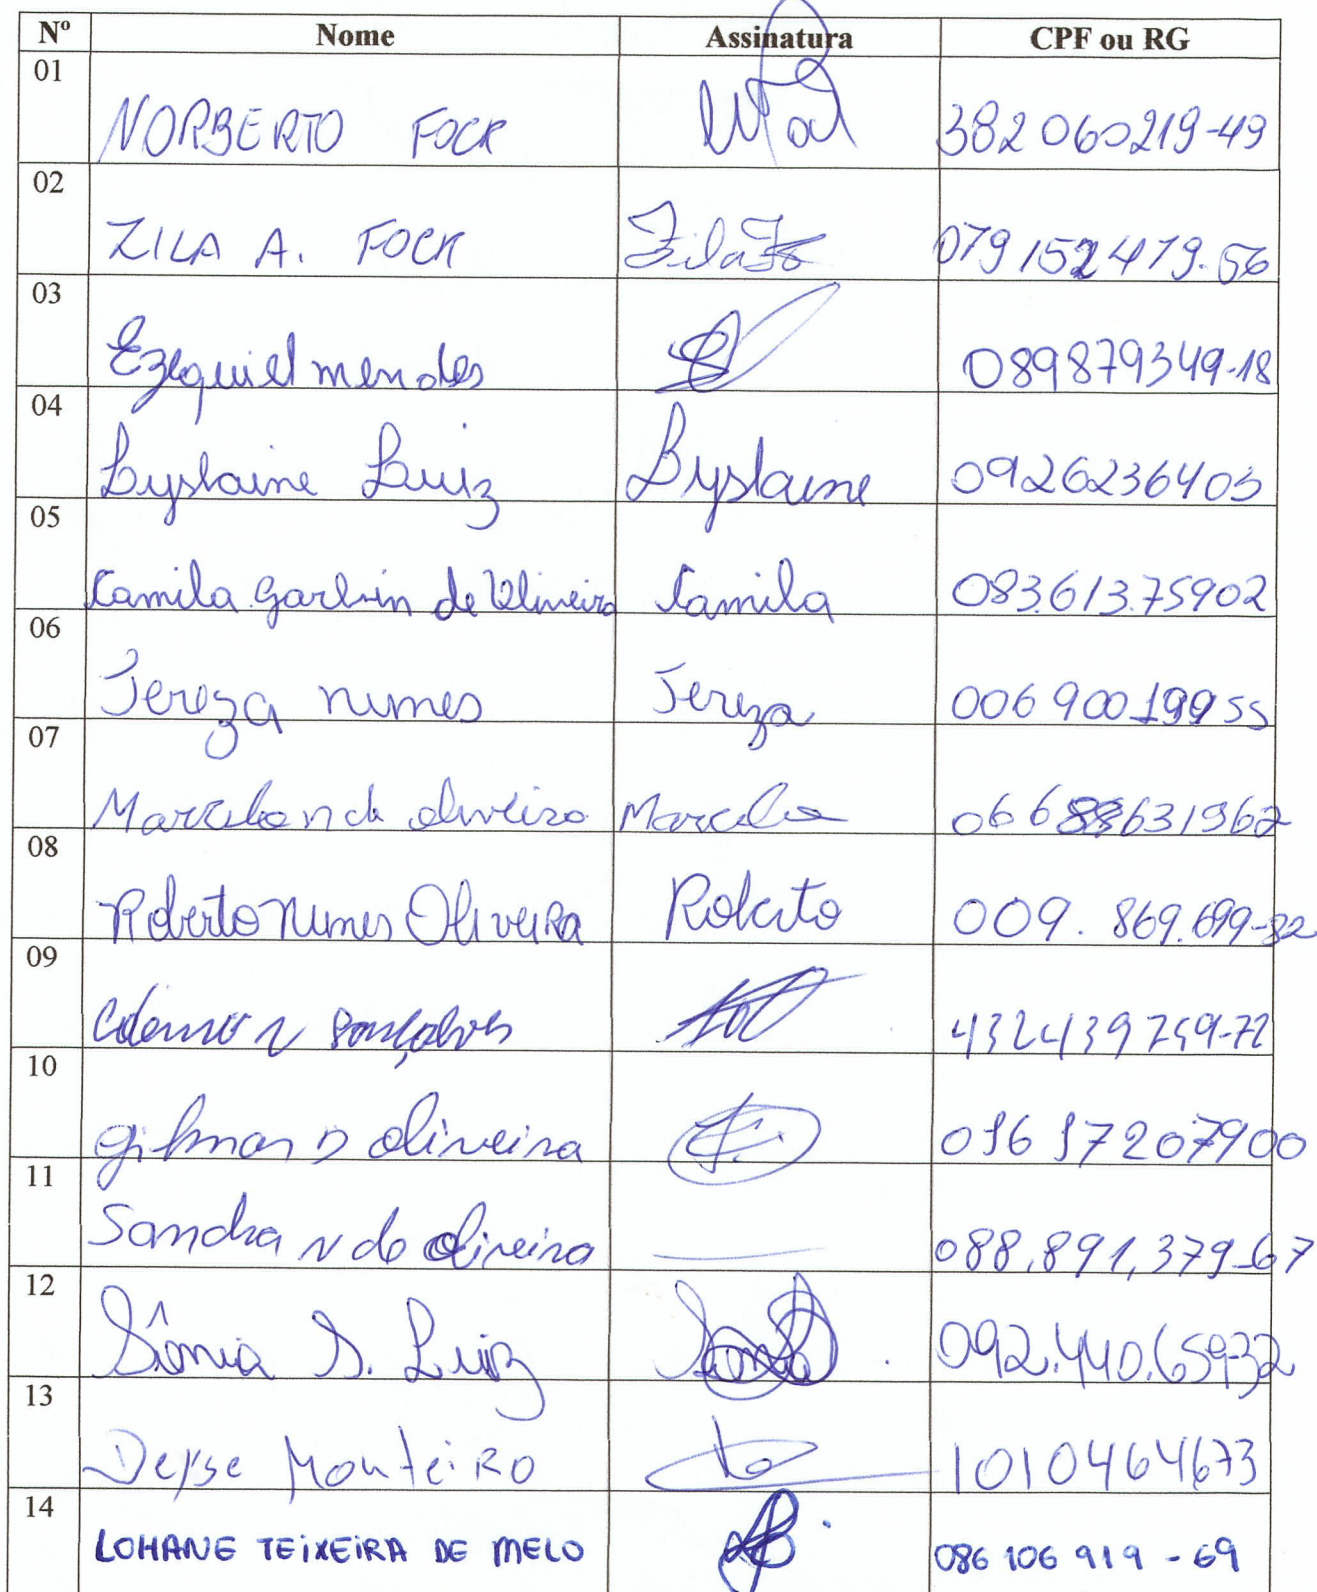 Nº Nome Assinatura CPF ou RG
01 NORBERTO FOCK 382 060219-49
02 ZILA A. FOCK Zila Fo 079 152 479.56
03 Ezequiel mendes 089879349-18
04 Gyslaine Luiz Gyslaine 09262364 03
05 Camila Garbin de Oliveira Camila 083.613.75902
06 Tereza nunes Tereza 006 900 199 55
07 Marcelo n de oliveira Marcelo 066 631962
08 Roberto Nunes Oliveira Roberto 009. 869.699-32
09 N Gonçalves 432439759-72
10 gilmar D oliveira 016 17207900
11 Sandra N de oliveira 088.891,379-67
12 Sônia S. Luiz Sonia 092.440.659-32
13 Deyse MonteiRO 1010464673
14 LOHANE TEIXEIRA DE MELO 086 106 919 - 69